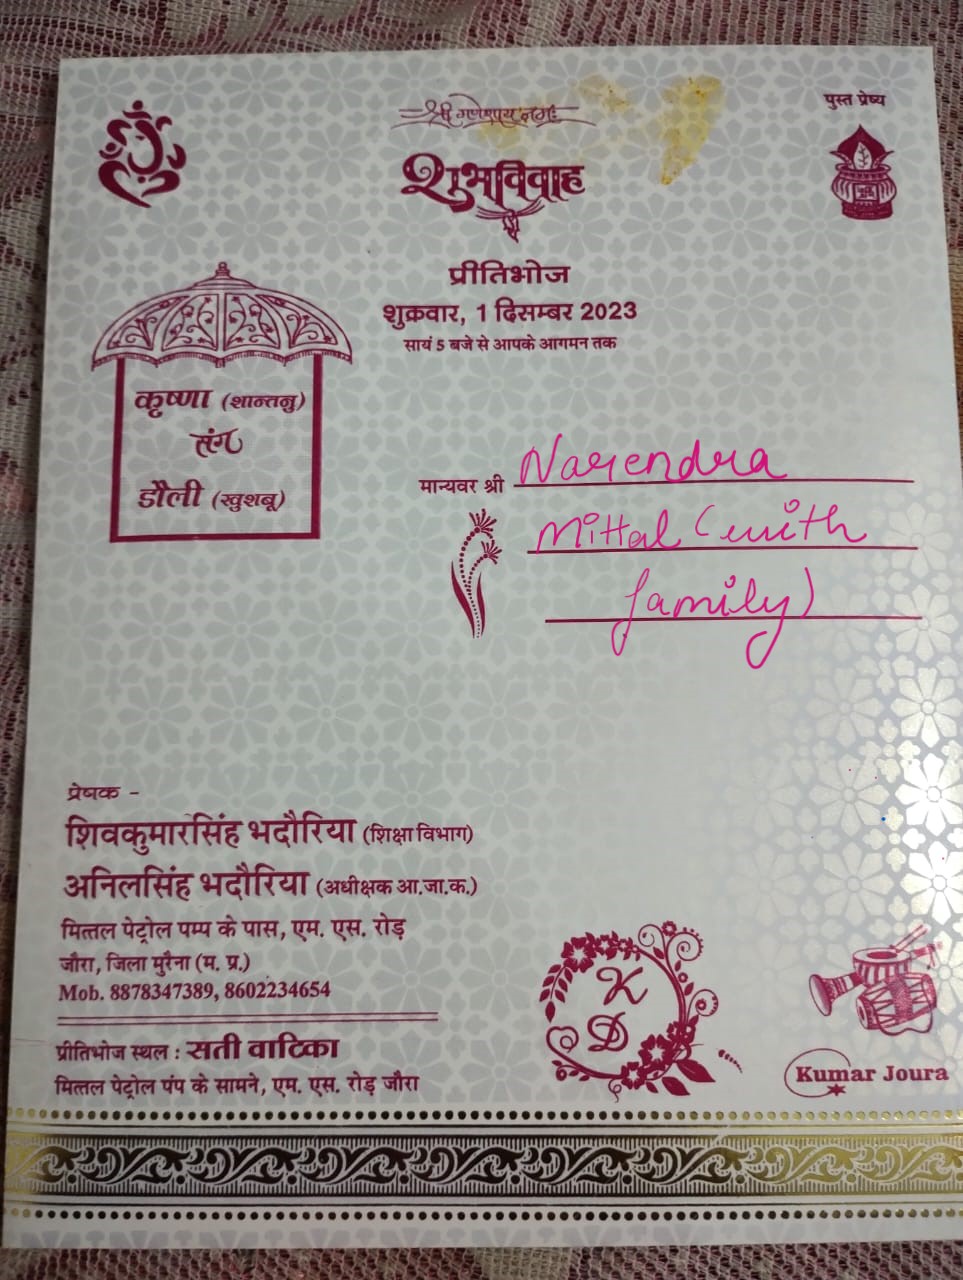 श्री गणेशाय नमः
पुस्त प्रेष्य
शुभविवाह
प्रीतिभोज
शुक्रवार, 1 दिसम्बर 2023
सायं 5 बजे से आपके आगमन तक
कृष्णा (शान्तनु)
संग
डौली (खुशबू)
मान्यवर श्री Narendra
Mittal (with
family)
प्रेषक -
शिवकुमारसिंह भदौरिया (शिक्षा विभाग)
अनिलसिंह भदौरिया (अधीक्षक आ.जा.क.)
मित्तल पेट्रोल पम्प के पास, एम. एस. रोड़
जौरा, जिला मुरैना (म. प्र.)
Mob. 8878347389, 8602234654
प्रीतिभोज स्थल : सती वाटिका
मित्तल पेट्रोल पंप के सामने, एम. एस. रोड़ जौरा
K
D
Kumar Joura